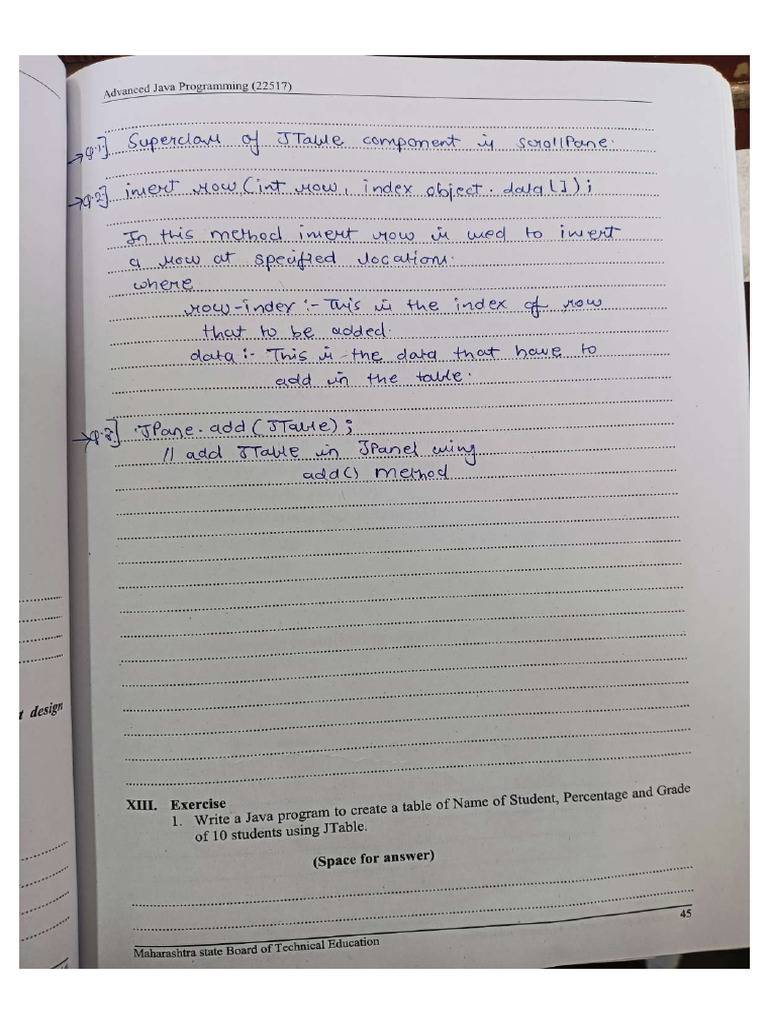 Advanced Java Programming (22517)
→Q.1] Superclass of JTable component is scrollPane.
→Q.2] insert row(int row, index object. data[]);
In this method insert row is used to insert
a row at specified location.
where
row-index :- This is the index of row
that to be added.
data :- This is the data that have to
add in the table.
→Q.3] JPane.add(JTable);
// add JTable in JPanel using
add() method
t design
XIII. Exercise
1. Write a Java program to create a table of Name of Student, Percentage and Grade
of 10 students using JTable.
(Space for answer)
45
Maharashtra state Board of Technical Education